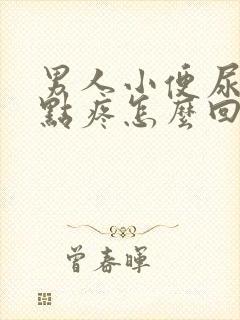 男人小便尿
點疼怎麼回
曾春暉